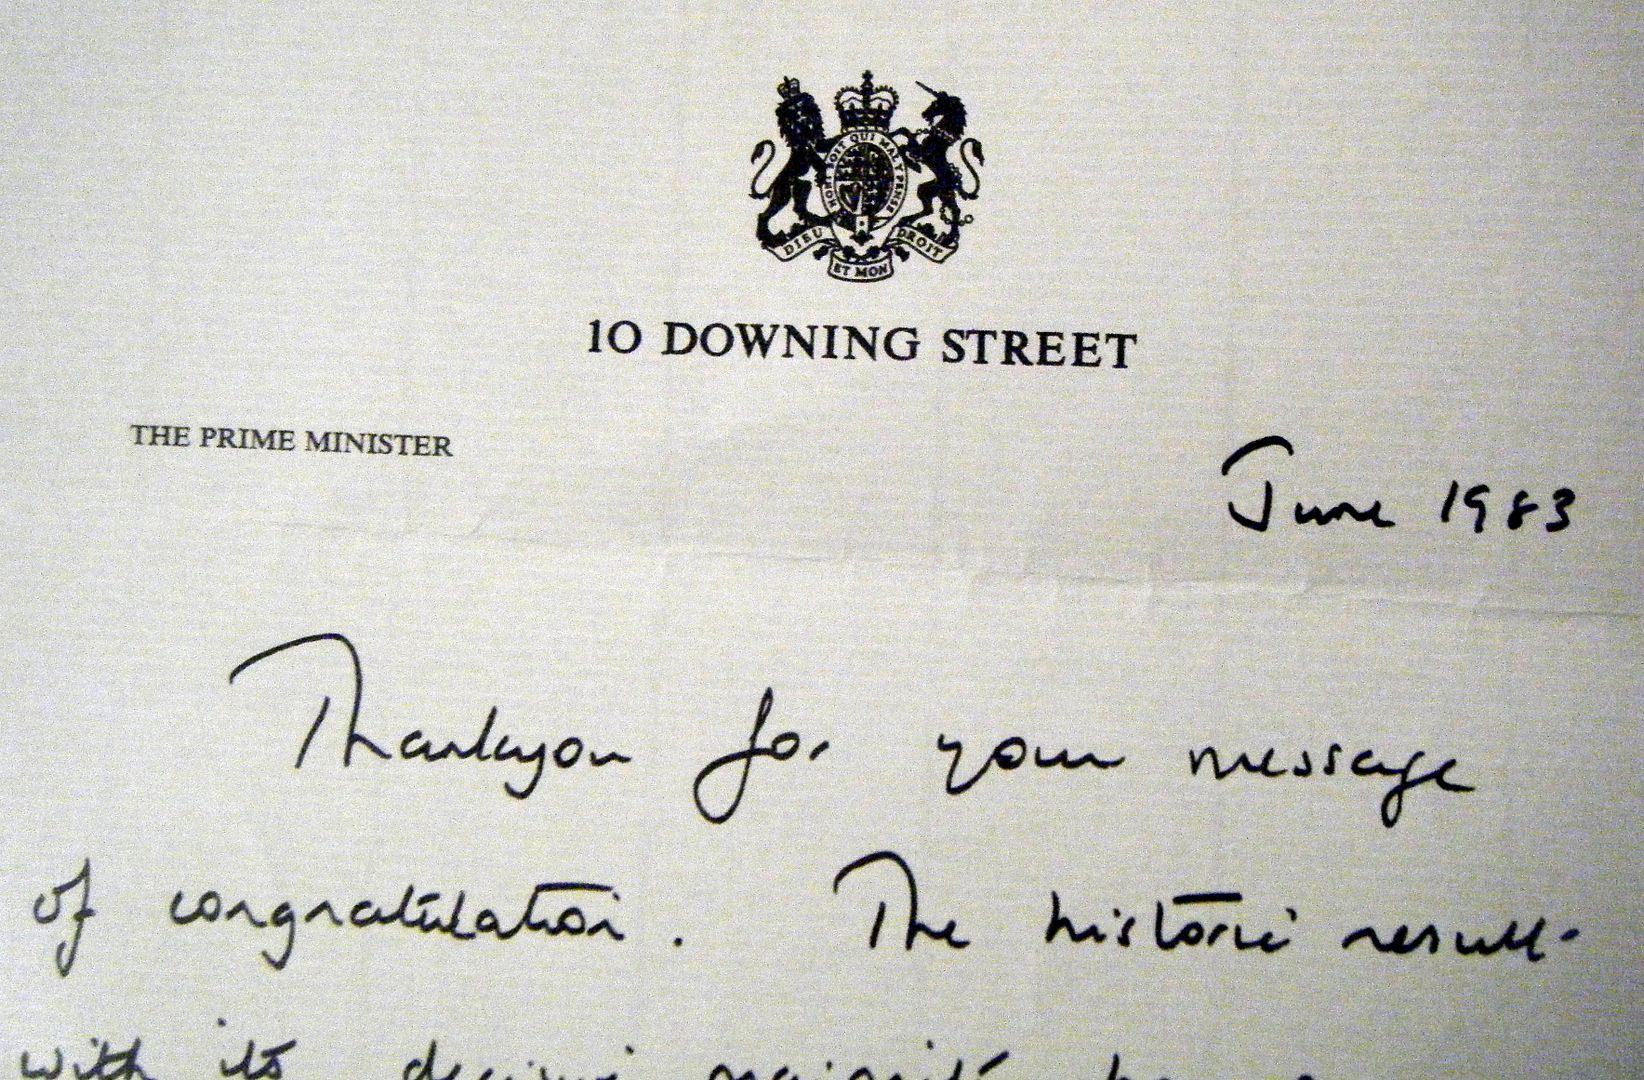 HONI SOIT QUI MAL Y PENSE
DIEU ET MON DROIT
10 DOWNING STREET
THE PRIME MINISTER
June 1983
Thankyou for your message
of congratulation. The historic result
with its decisive majority